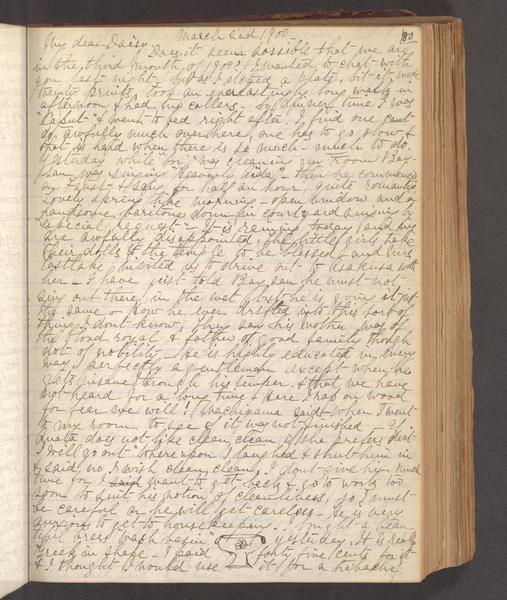 80
My dear Daisy. March 2nd 1908
Does it seem possible that we are
in the third month of 1908? I wanted to chat with
you last night - but as I etched a plate, bit it, made
twenty prints, took an everlastingly long walk in
afternoon & had my callers - by dinner time I was
"Caput" & went to bed right after. I find one can't
do awfully much over here, one has to go slow &
that is hard when there is so much - much to do.
Yesterday while "Boi" was cleaning my room Bay-
San was singing "Heavenly Aida" - then he commenced
my & sang for half an hour. Quite romantic,
lovely spring like morning - open window and a
handsome baritone down in courtyard singing by
especial request - It is raining today and my
are awfully disappointed, the little girls take
their dolls to the temple to be blessed and Mrs
invited us to drive out to Asakusa with
her - I have just told Bay San he must not
sing out there in the wet, but he is going at it just
the same - How he ever drifted into this sort of
thing I don't know, his mother was of
the blood royal & father of good family though
not of nobility - He is highly educated in every
way & perfectly a gentleman except when he
gets insane through his temper & that we have
not heard for a long time & here I rap on wood
for fear we will! Hachigama said when I went
to my room to see if it was not finished - "If
Anata does not like clean, clean, if she prefers dirt -
I will go out" whereupon I laughed & shut him in
& said no I wish clean, clean, I don't give him much
time for I want to get back & go to work too
soon to suit his notion of cleanliness, so I must
be careful or he will get careless - He is very
anxious to get to housekeeping. I bought a beau-
tiful brass wash basin yesterday. It is really
Greek in shape - I paid forty five cents for it
& I thought I would use it for a hibachi